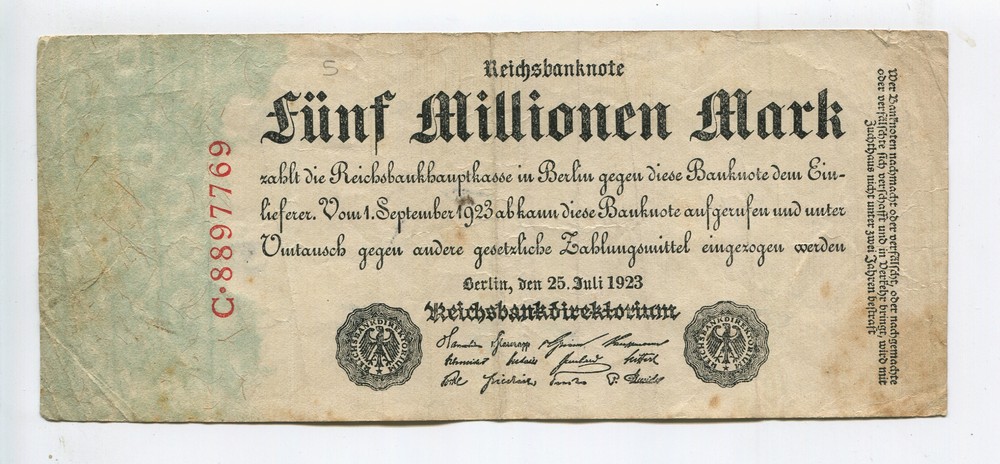 S
Reichsbanknote
Fünf Millionen Mark
zahlt die Reichsbankhauptkasse in Berlin gegen diese Banknote dem Ein-
lieferer. Vom 1. September 1923 ab kann diese Banknote aufgerufen und unter
Umtausch gegen andere gesetzliche Zahlungsmittel eingezogen werden
Berlin, den 25. Juli 1923
Reichsbankdirektorium
REICHSBANKDIREKTORIUM
REICHSBANKDIREKTORIUM
C·8897769
Wer Banknoten nachmacht oder verfälscht, oder nachgemachte
oder verfälschte sich verschafft und in Verkehr bringt, wird mit
Zuchthaus nicht unter zwei Jahren bestraft